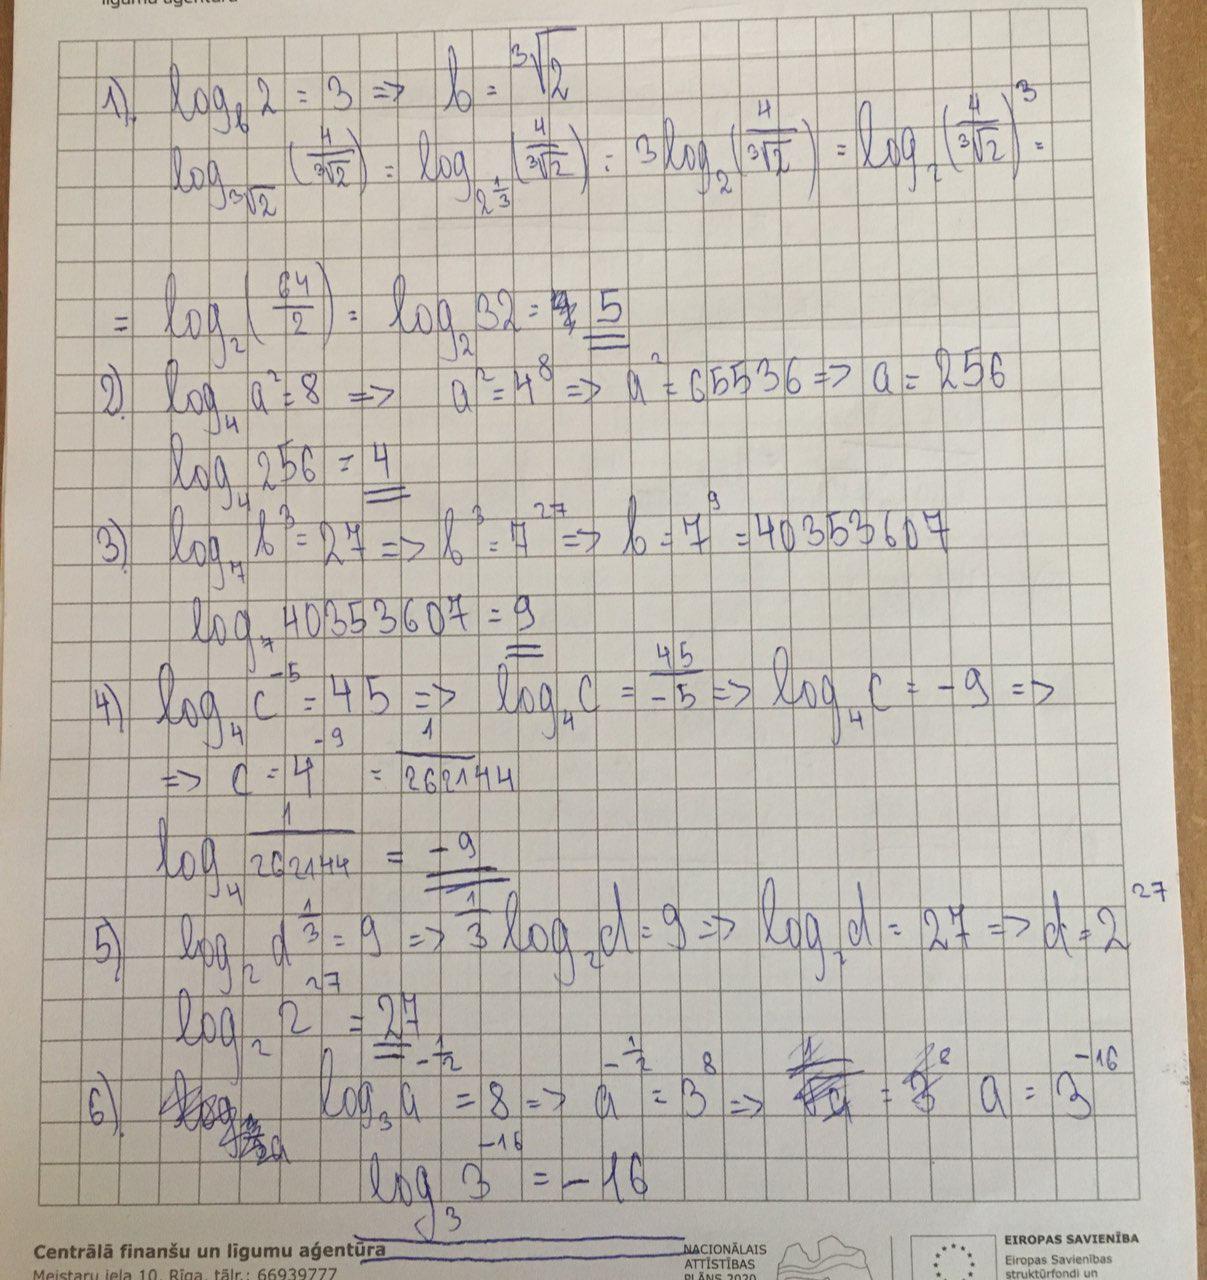 līgumu aģentūra
1). log_b 2 = 3 => b = ³√2
log_³√2 (4/³√2) = log_2^(1/3) (4/³√2) = 3log_2 (4/³√2) = log_2 (4/³√2)³ =
= log_2 (64/2) = log_2 32 = 5
2). log_4 a² = 8 => a² = 4⁸ => a² = 65536 => a = 256
log_4 256 = 4
3). log_7 b³ = 27 => b³ = 7²⁷ => b = 7⁹ = 40353607
log_7 40353607 = 9
4) log_4 c⁻⁵ = 45 => log_4 c = 45/-5 => log_4 c = -9 =>
=> c = 4⁻⁹ = 1/262144
log_4 1/262144 = -9
5) log_2 d^(1/3) = 9 => 1/3 log_2 d = 9 => log_2 d = 27 => d = 2²⁷
log_2 2²⁷ = 27
6). log_3 a^(-1/2) = 8 => a^(-1/2) = 3⁸ => a = 3⁻¹⁶
log_3 3⁻¹⁶ = -16
Centrālā finanšu un līgumu aģentūra
Meistaru iela 10, Rīga, tālr.: 66939777
NACIONĀLAIS
ATTĪSTĪBAS
PLĀNS 2020
EIROPAS SAVIENĪBA
Eiropas Savienības
struktūrfondi un